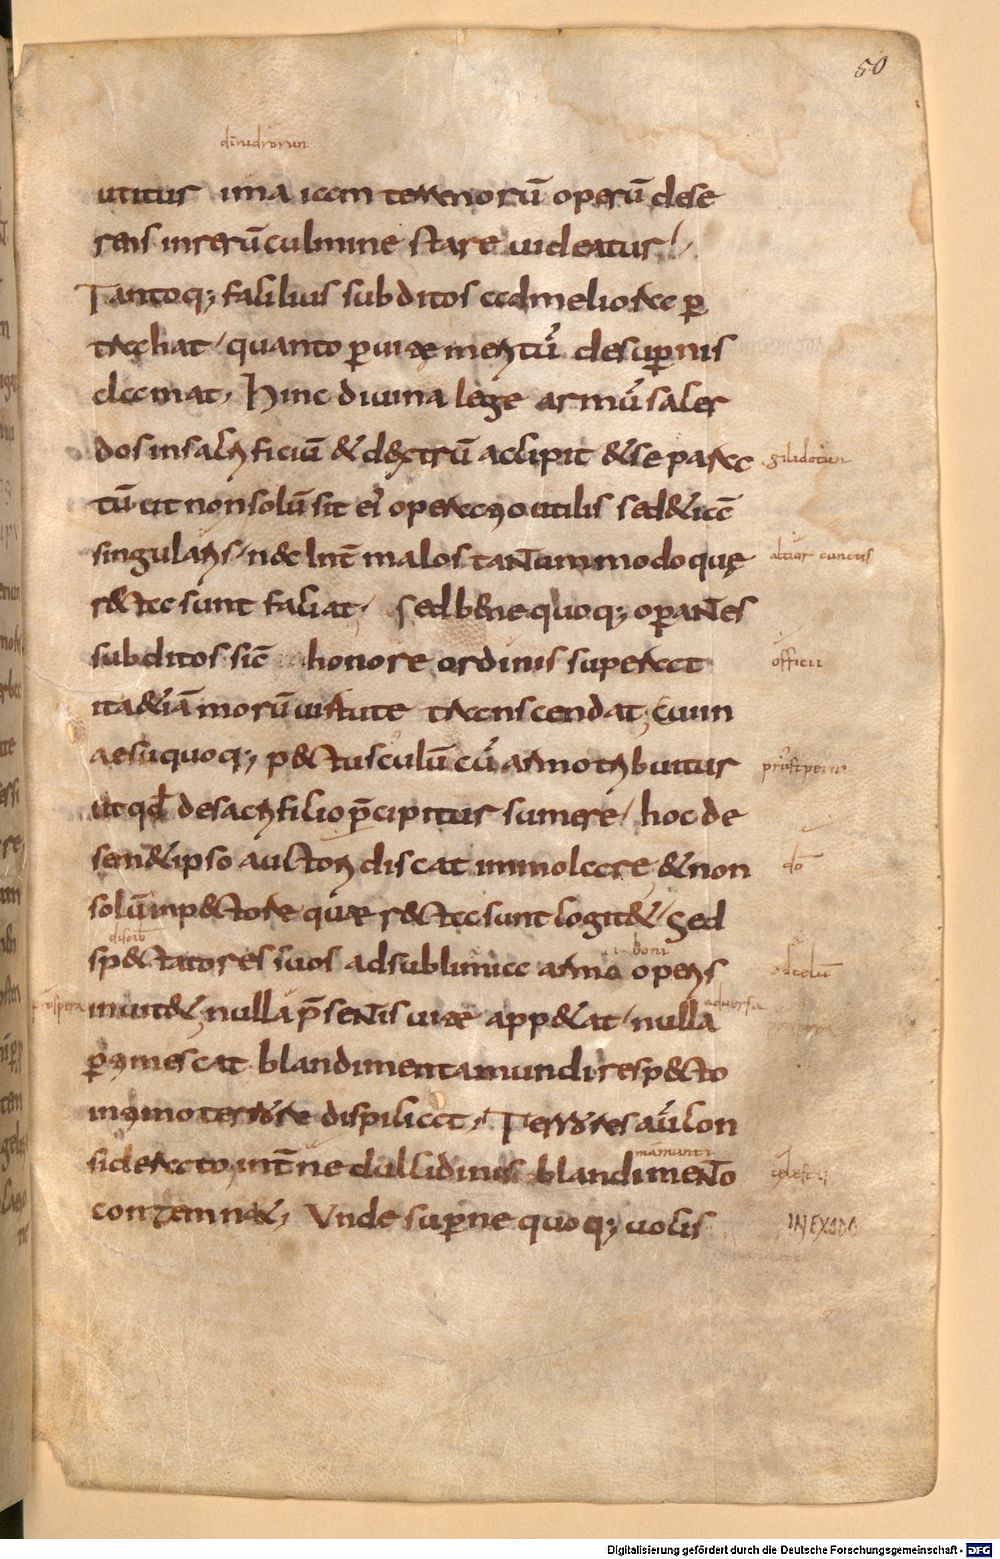 50
utitur ima iam terrenorū operū dese
rens in rerū culmine stare uideatur
Tantoq; facilius subditos ad meliora p
trahat quanto p uitae meritū de supnis
clamat. Hinc diuina lege armū sacer
dos in sacrificiū & dextrū accipit & separa
tū ut non solū sit ei operatio utilis sed & iā
singularis nec int malos tantummodo quę
recta sunt faciat, sed bene quoq; opantes
subditos sic honore ordinis superat
ita & iā morū uirtute transcendat, cui in
aesu quoq; pectusculū cū armo tribuitur
ut qd de sacrificio p̄cipitur sumere hoc de
semetipso auctori discat immolare, & non
solū in pectore quae recta sunt cogitet Sed
spectatores suos ad sublimia armo operis
inuitet, nulla p̄sentis uitae appetat nulla
ptimescat blandimenta mundi respecto
intimo terrore dispiciat, Terrores aū con
siderato int̄ne dulcidinis blandimento
contemnat, Vnde supne quoq; uocis
officii
do
IN EXODO
adversa
Digitalisierung gefördert durch die Deutsche Forschungsgemeinschaft - DFG